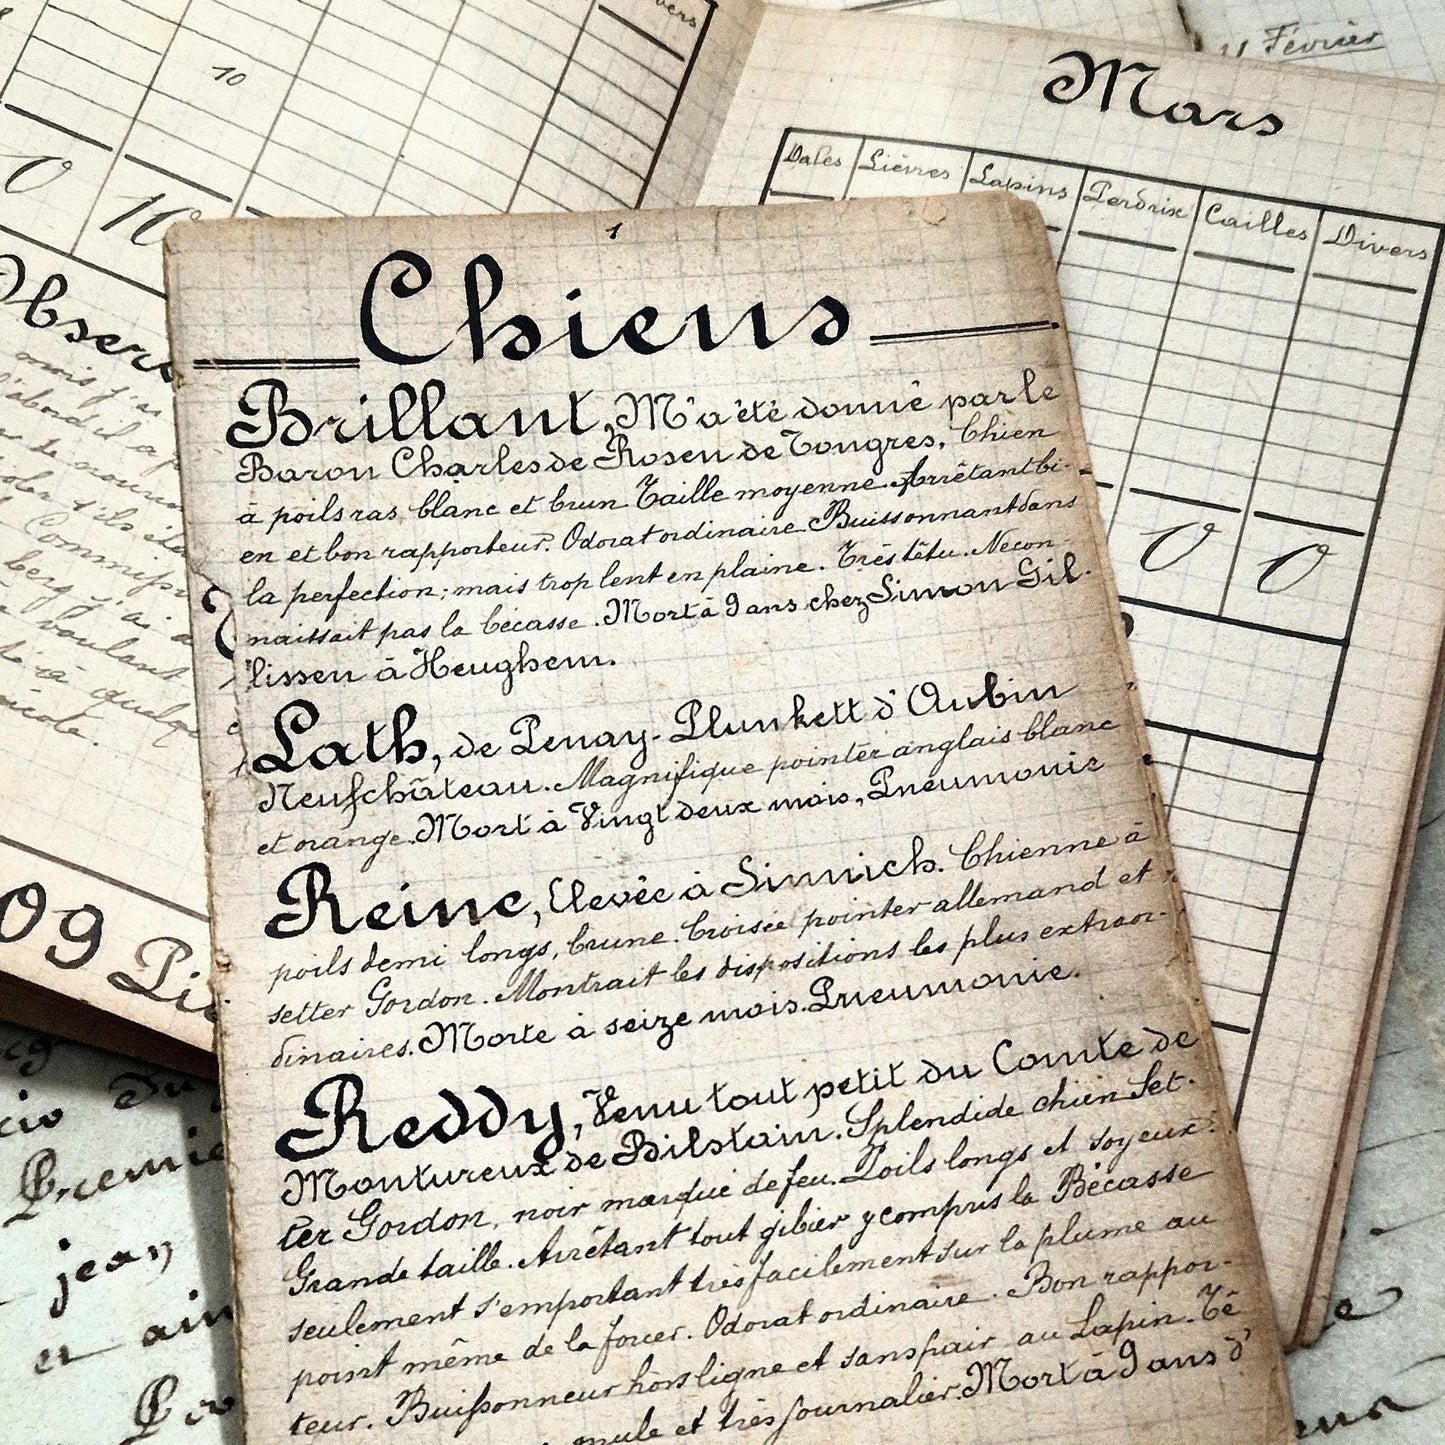 11 Février
Mars
Dates Lièvres Lapins Perdrix Cailles Divers
0 0
10
0 10
Observ
mois j'ai
d'abord il a
Commiss
berg j'ai a
voulant
à quelq
09 Pi
Premie
jean
et ain
1
Chiens
Brillant, M'a été donné par le
Baron Charles de Rosen de Tongres, Chien
à poils ras blanc et brun Taille moyenne. Arrêtant bi-
en et bon rapporteur. Odorat ordinaire Buissonnant dans
la perfection; mais trop lent en plaine. Très têtu. Necon-
naissait pas la bécasse. Mort à 9 ans chez Simon Gil-
lissen à Heughem.
Lath, de Penay-Plunkett d'Aubin
Neufchâteau. Magnifique pointer anglais blanc
et orange. Mort à Vingt deux mois, Pneumonie
Reine, Elevée à Sinnich. Chienne à
poils demi longs, brune. Croisée pointer allemand et
setter Gordon. Montrait les dispositions les plus extraor-
dinaires. Morte à seize mois. Pneumonie.
Reddy, Venu tout petit du Comte de
Montureux de Bilstain. Splendide chien Set-
ter Gordon, noir marqué de feu. Poils longs et soyeux.
Grande taille. Arrêtant tout gibier y compris la Bécasse
seulement s'emportant très facilement sur la plume au
point même de la forcer. Odorat ordinaire. Bon rappor-
teur. Buissonneur hors ligne et sans pair au Lapin. Tê
mule et très journalier. Mort à 9 ans d'